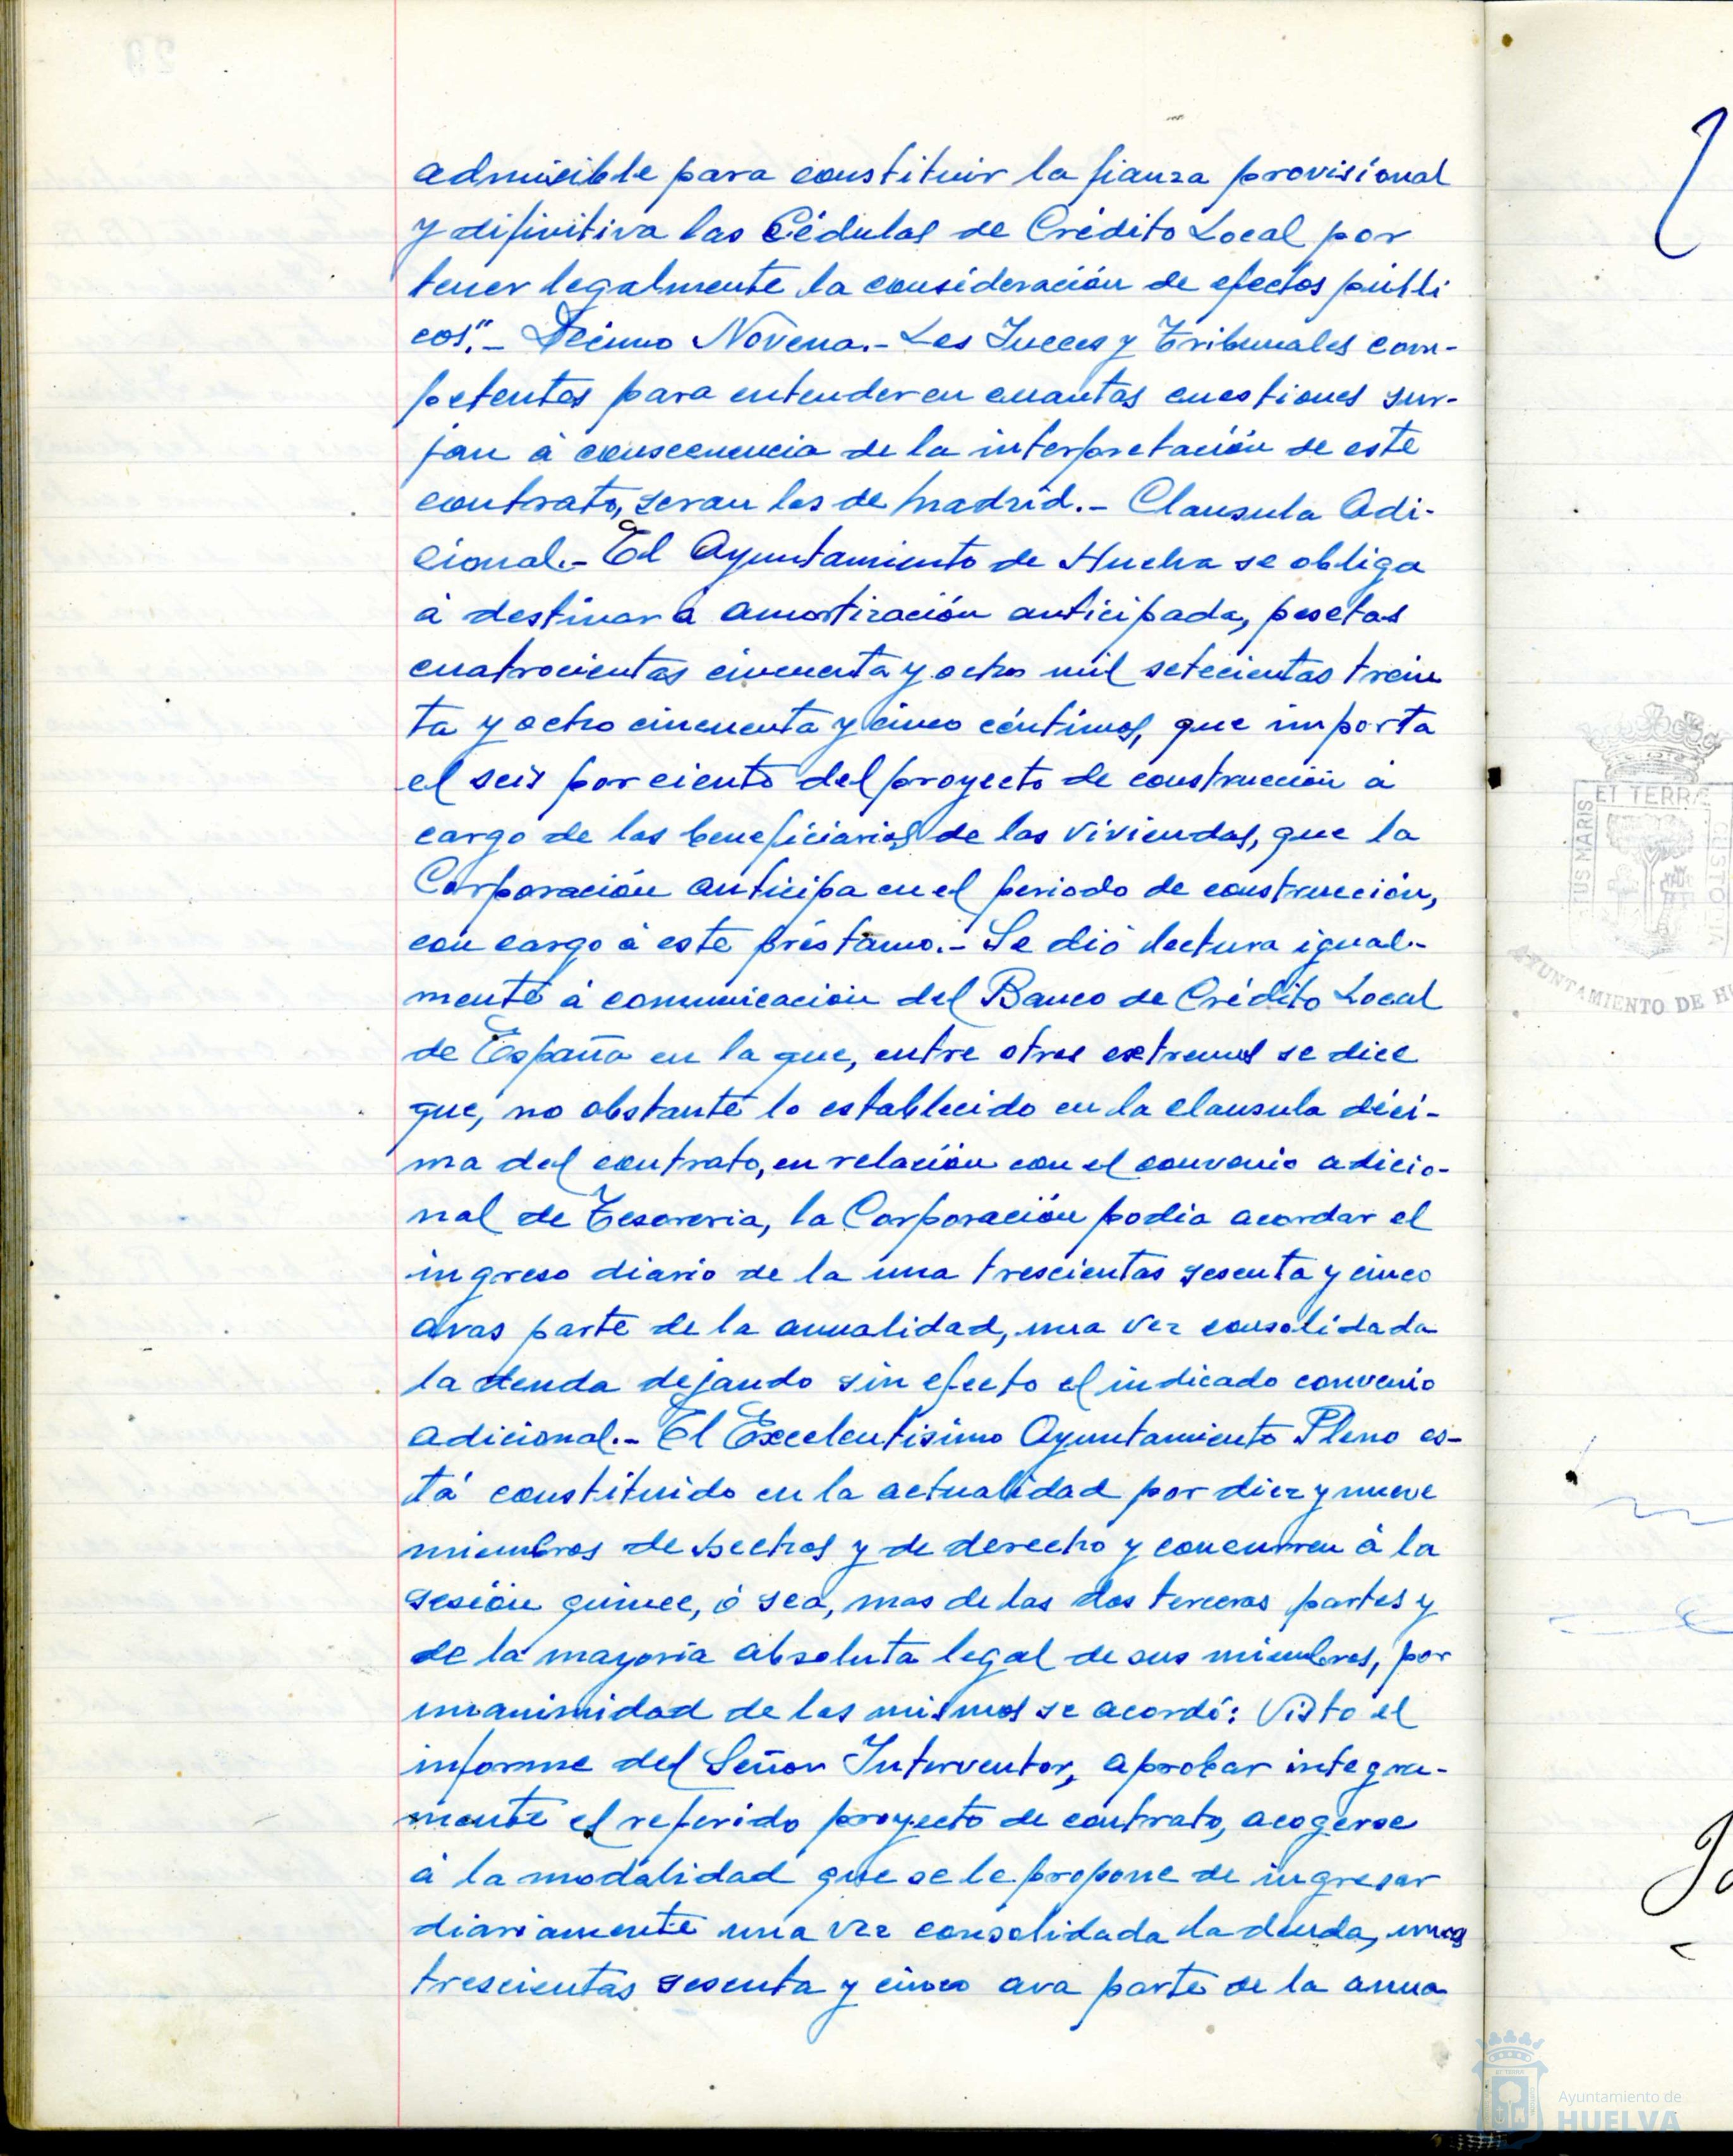 admisible para constituir la fianza provisional
y difinitiva las Cédulas de Crédito Local por
tener legalmente la consideración de efectos públi
cos".- Décimo Novena.- Los Jueces y Tribunales com-
petentes para entender en cuantas cuestiones sur-
jan á consecuencia de la interpretación de este
contrato, seran los de Madrid.- Clausula Adi-
cional.- El Ayuntamiento de Huelva se obliga
á destinar á amortización anticipada, pesetas
cuatrocientas cincuenta y ocho mil setecientas trein
ta y ocho cincuenta y cinco céntimos, que importa
el seis por ciento del proyecto de construcción á
cargo de los beneficiarios de las viviendas, que la
Corporación anticipa en el periodo de construcción,
con cargo á este préstamo.- Se dió lectura igual-
mente á comunicación del Banco de Crédito Local
de España en la que, entre otros extremos se dice
que, no obstante lo establecido en la clausula déci-
ma del contrato, en relación con el convenio adicio-
nal de Tesoreria, la Corporación podia acordar el
ingreso diario de la una trescientas sesenta y cinco
avas parte de la anualidad, una vez consolidada
la deuda dejando sin efecto el indicado convenio
adicional.- El Excelentisimo Ayuntamiento Pleno es-
tá constituido en la actualidad por diez y nueve
miembros de hechos y de derecho y concurren á la
sesión quince, ó sea, mas de las dos terceras partes y
de la mayoria absoluta legal de sus miembros, por
unanimidad de los mismos se acordó: Visto el
informe del Señor Interventor, aprobar integra-
mente el referido proyecto de contrato, acogerse
á la modalidad que se le propone de ingresar
diariamente una vez consolidada la deuda, una
trescientas sesenta y cinco ava parte de la anua
ET TERRÆ
CUSTODIA
US MARIS
AYUNTAMIENTO DE HU
Ayuntamiento de
HUELVA